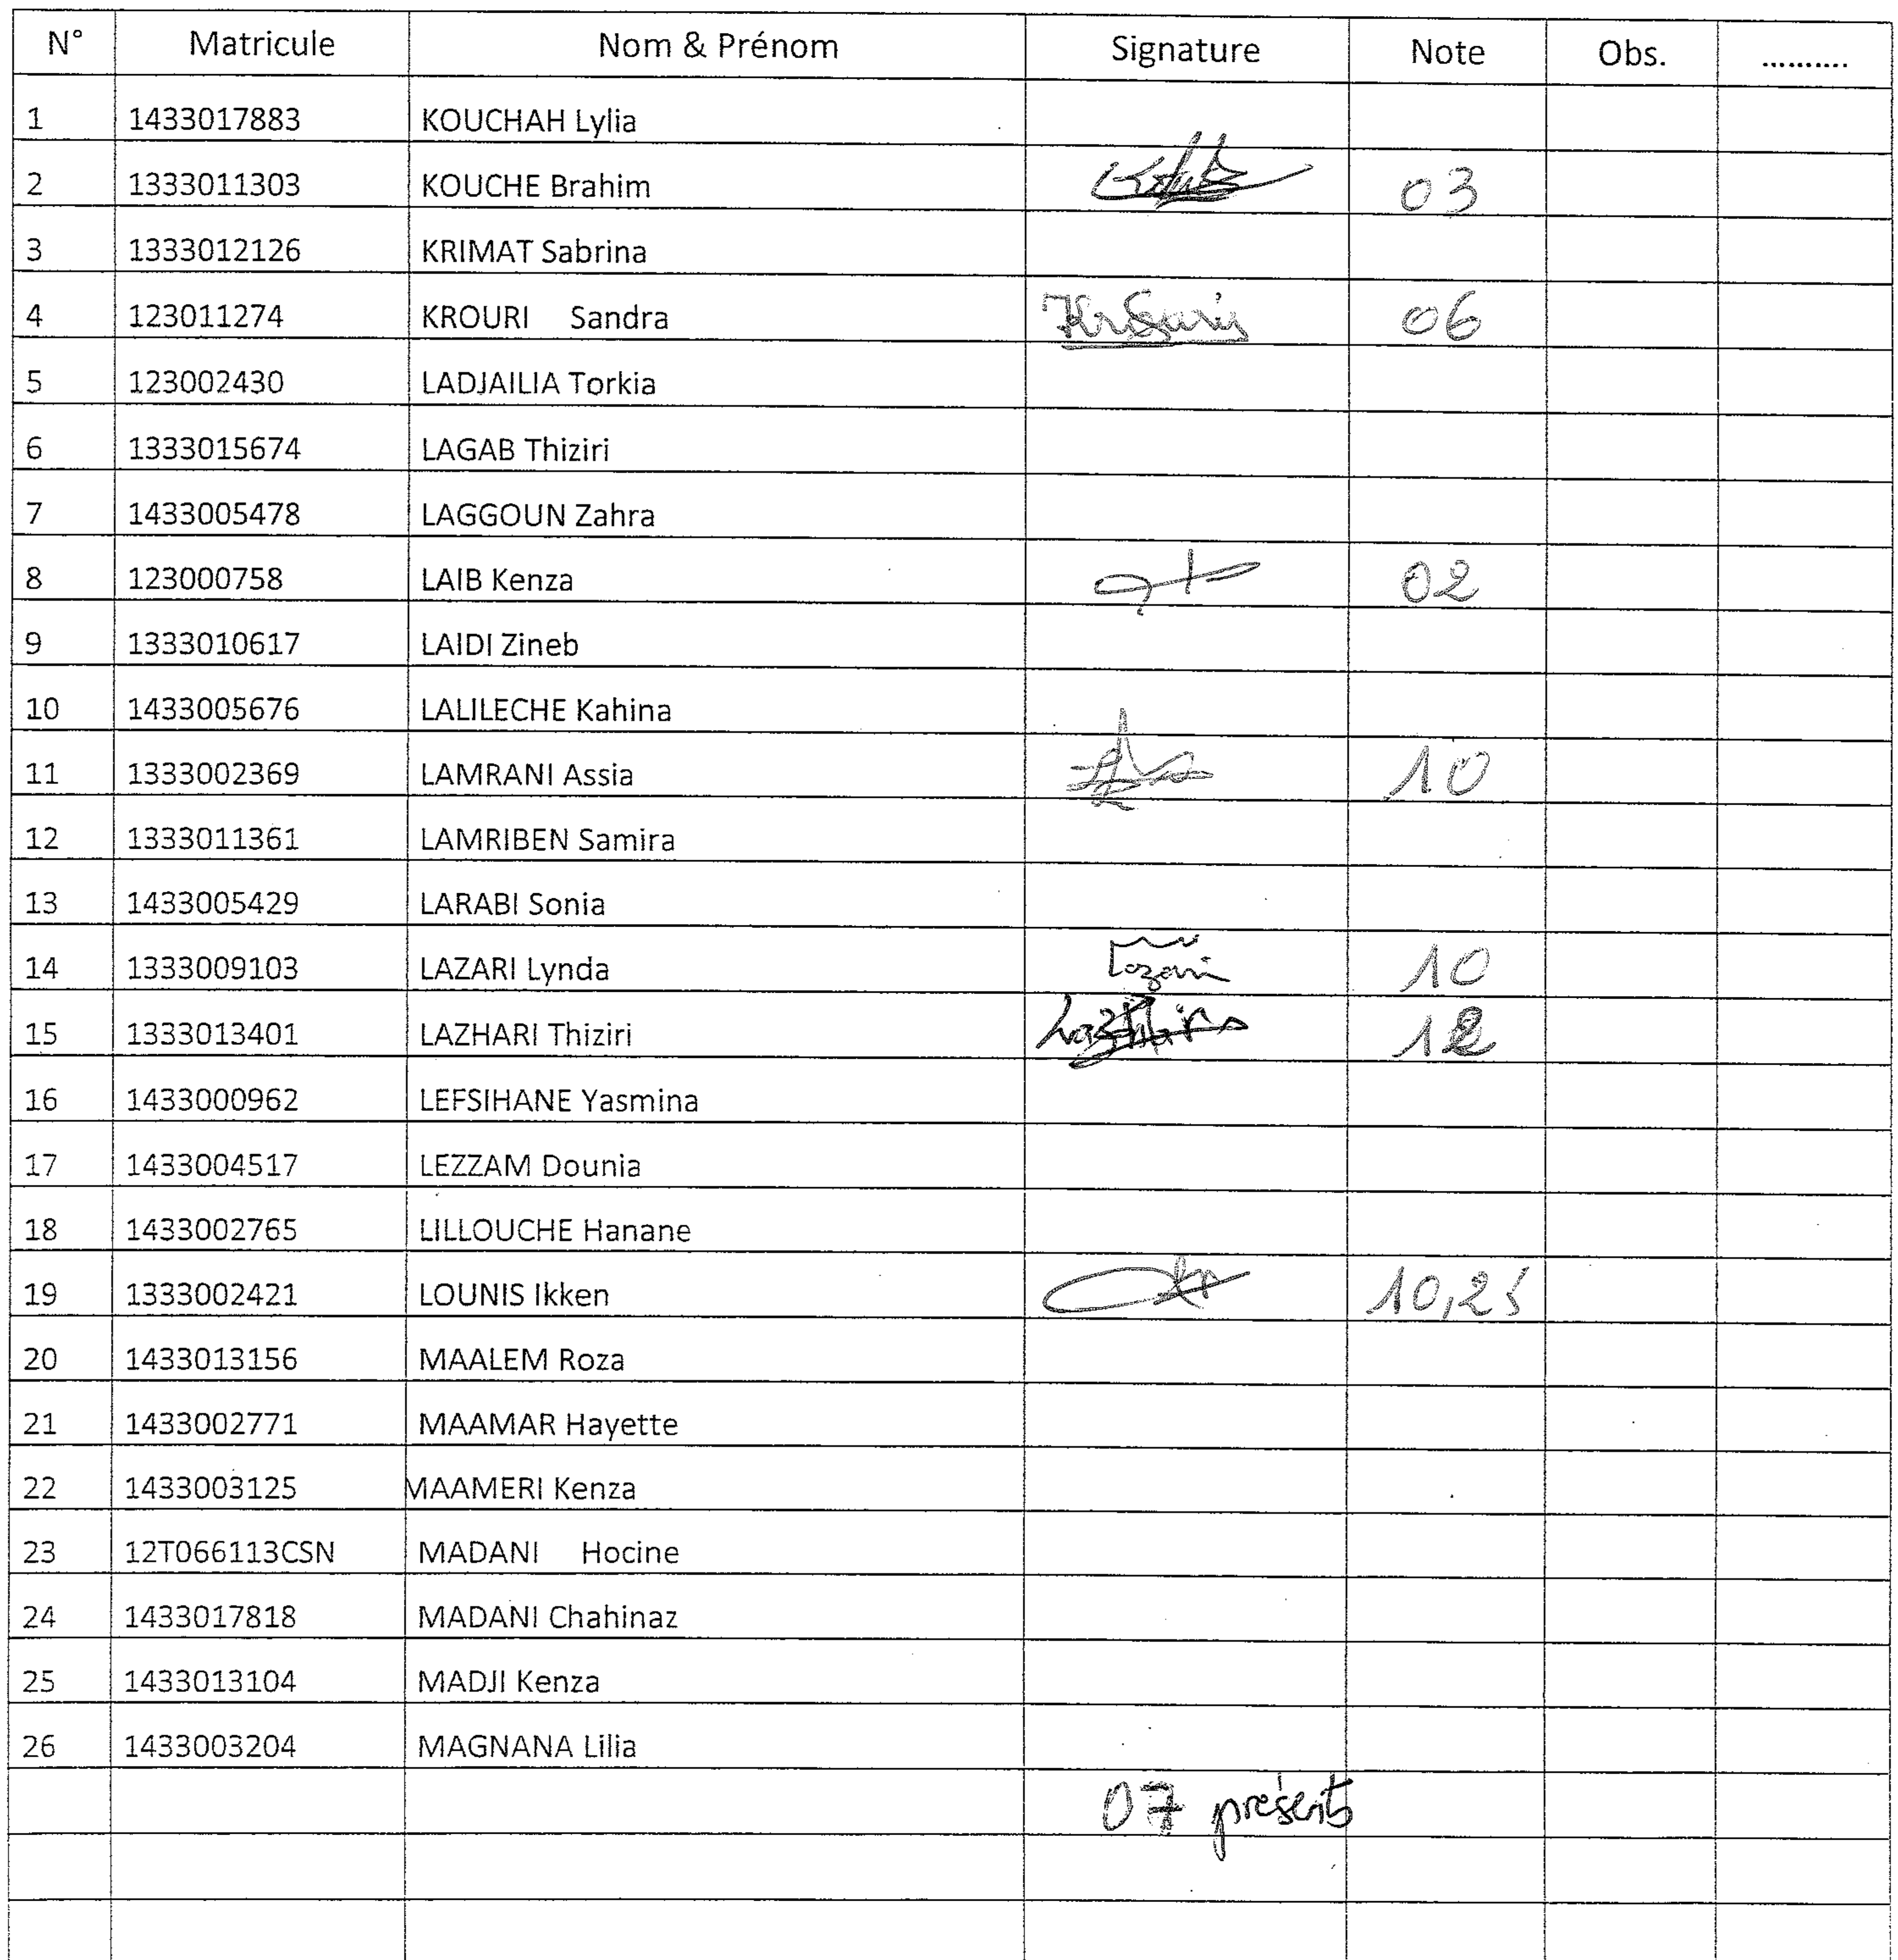 N° Matricule Nom & Prénom Signature Note Obs. ..........
1 1433017883 KOUCHAH Lylia
2 1333011303 KOUCHE Brahim 03
3 1333012126 KRIMAT Sabrina
4 123011274 KROURI Sandra 06
5 123002430 LADJAILIA Torkia
6 1333015674 LAGAB Thiziri
7 1433005478 LAGGOUN Zahra
8 123000758 LAIB Kenza 02
9 1333010617 LAIDI Zineb
10 1433005676 LALILECHE Kahina
11 1333002369 LAMRANI Assia 10
12 1333011361 LAMRIBEN Samira
13 1433005429 LARABI Sonia
14 1333009103 LAZARI Lynda Lazari 10
15 1333013401 LAZHARI Thiziri 12
16 1433000962 LEFSIHANE Yasmina
17 1433004517 LEZZAM Dounia
18 1433002765 LILLOUCHE Hanane
19 1333002421 LOUNIS Ikken 10,25
20 1433013156 MAALEM Roza
21 1433002771 MAAMAR Hayette
22 1433003125 MAAMERI Kenza
23 12T066113CSN MADANI Hocine
24 1433017818 MADANI Chahinaz
25 1433013104 MADJI Kenza
26 1433003204 MAGNANA Lilia
07 présents